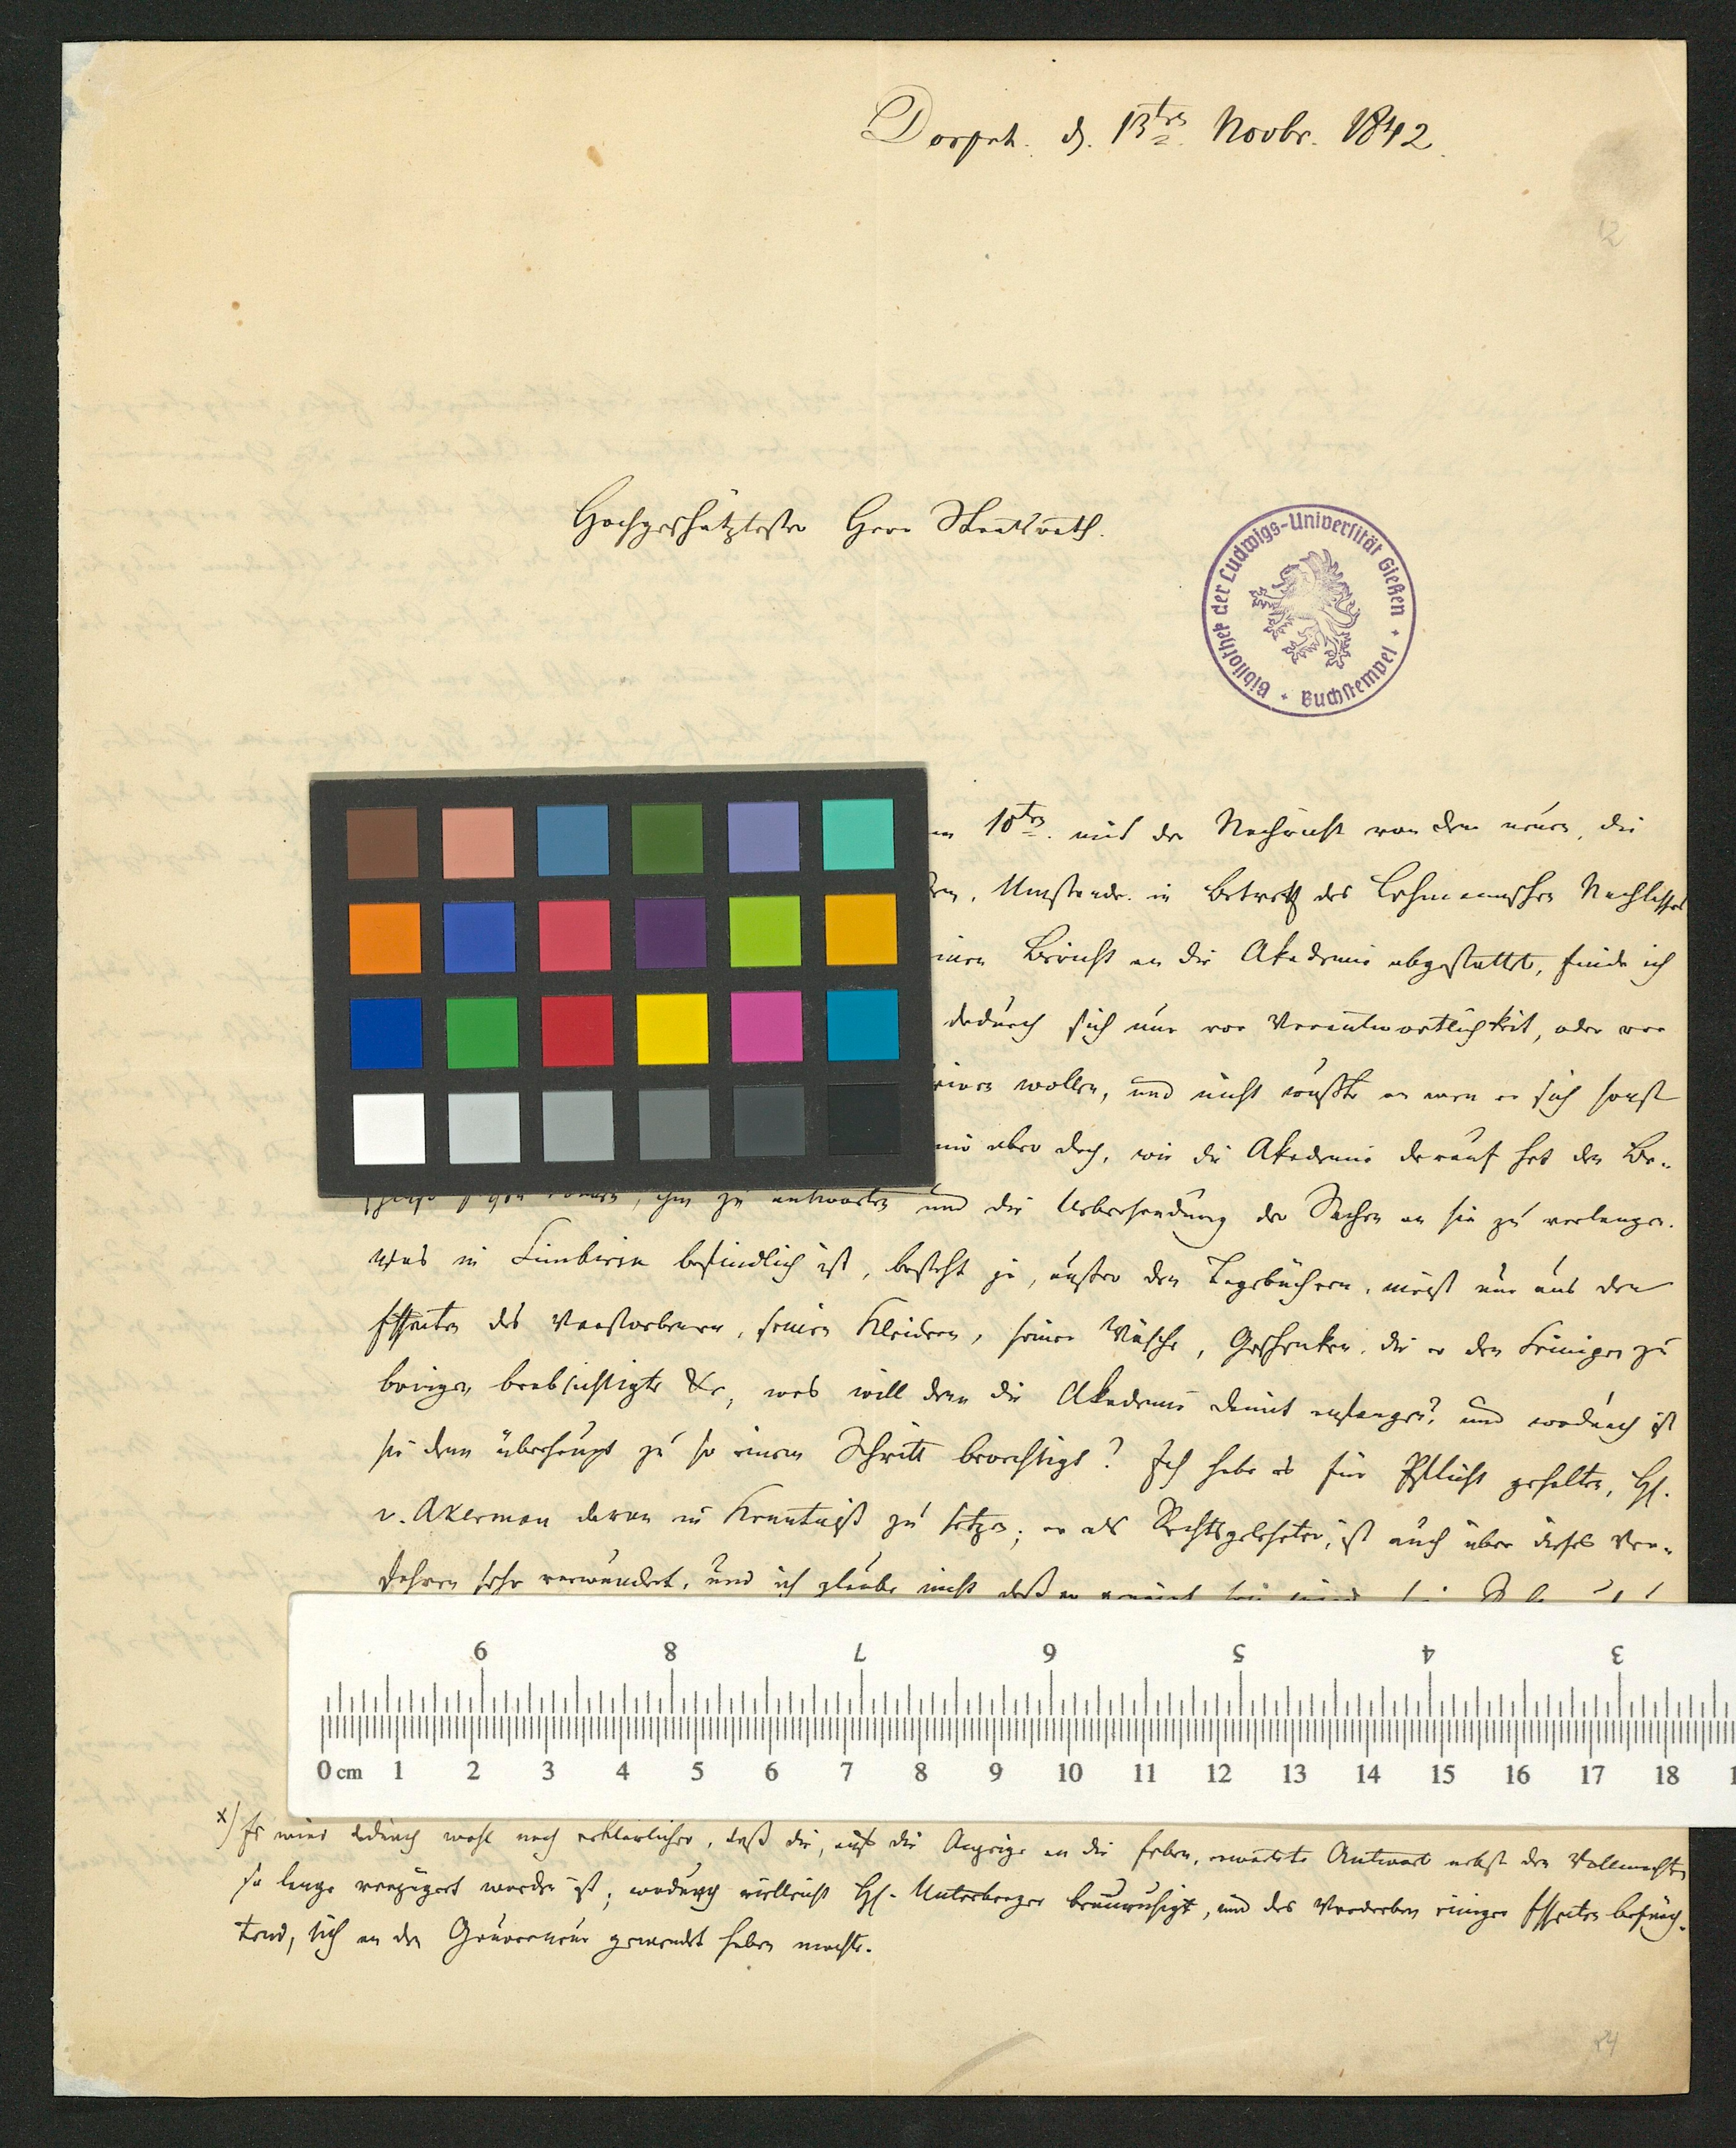 Dorpat. d. 13ten Novbr. 1842.
12
Hochgeschätztester Herr Staatsrath.
Bibliothek der Ludwigs-Universität Gießen
Buchstempel
10ten mit der Nachricht von dem neuen, die
Umstande in Betreff des Lehmannschen Nachlasses
Bericht an die Akademie abgestattet, finde ich
dadurch sich nur vor Verantwortlichkeit, oder vor
wollen, und nicht wußte an wen er sich sonst
aber doch, wie die Akademie darauf hat den Be-
ihm zu antworten und die Uebersendung der Sachen an sie zu verlangen.
Was in Simbirsk befindlich ist, besteht ja, außer den Tagebüchern, meist nur aus den
Effecten des Verstorbenen, seinen Kleidern, seiner Wäsche, Geschenken, die er den Seinigen zu
bringen beabsichtigte &c, was will denn die Akademie damit anfangen? und wodurch ist
sie denn überhaupt zu so einem Schritt berechtigt? Ich habe es für Pflicht gehalten, H.
v. Akerman davon in Kenntniß zu setzen; er als Rechtsgelehrter, ist auch über dieses Ver-
fahren sehr verwundert, und ich glaube nicht daß er
9 8 7 6 5 4 3
0 cm 1 2 3 4 5 6 7 8 9 10 11 12 13 14 15 16 17 18
x) Es wird dadurch wohl noch erklärlicher, daß die, auf die Anzeige an die Erben, erwartete Antwort nebst den Vollmachten
so lange verzögert worden ist; wodurch vielleicht H. Unterberger beunruhigt, und das Verderben einiger Effecten befürch-
tend, sich an den Gouverneur gewendet haben mochte.